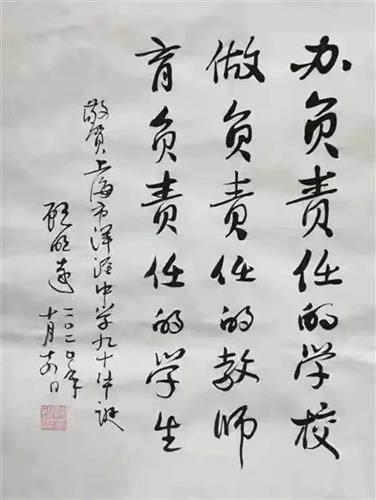 办负责任的学校
做负责任的教师
育负责任的学生
敬贺上海市洋泾中学九十华诞
顾明远
二〇二〇年
十月